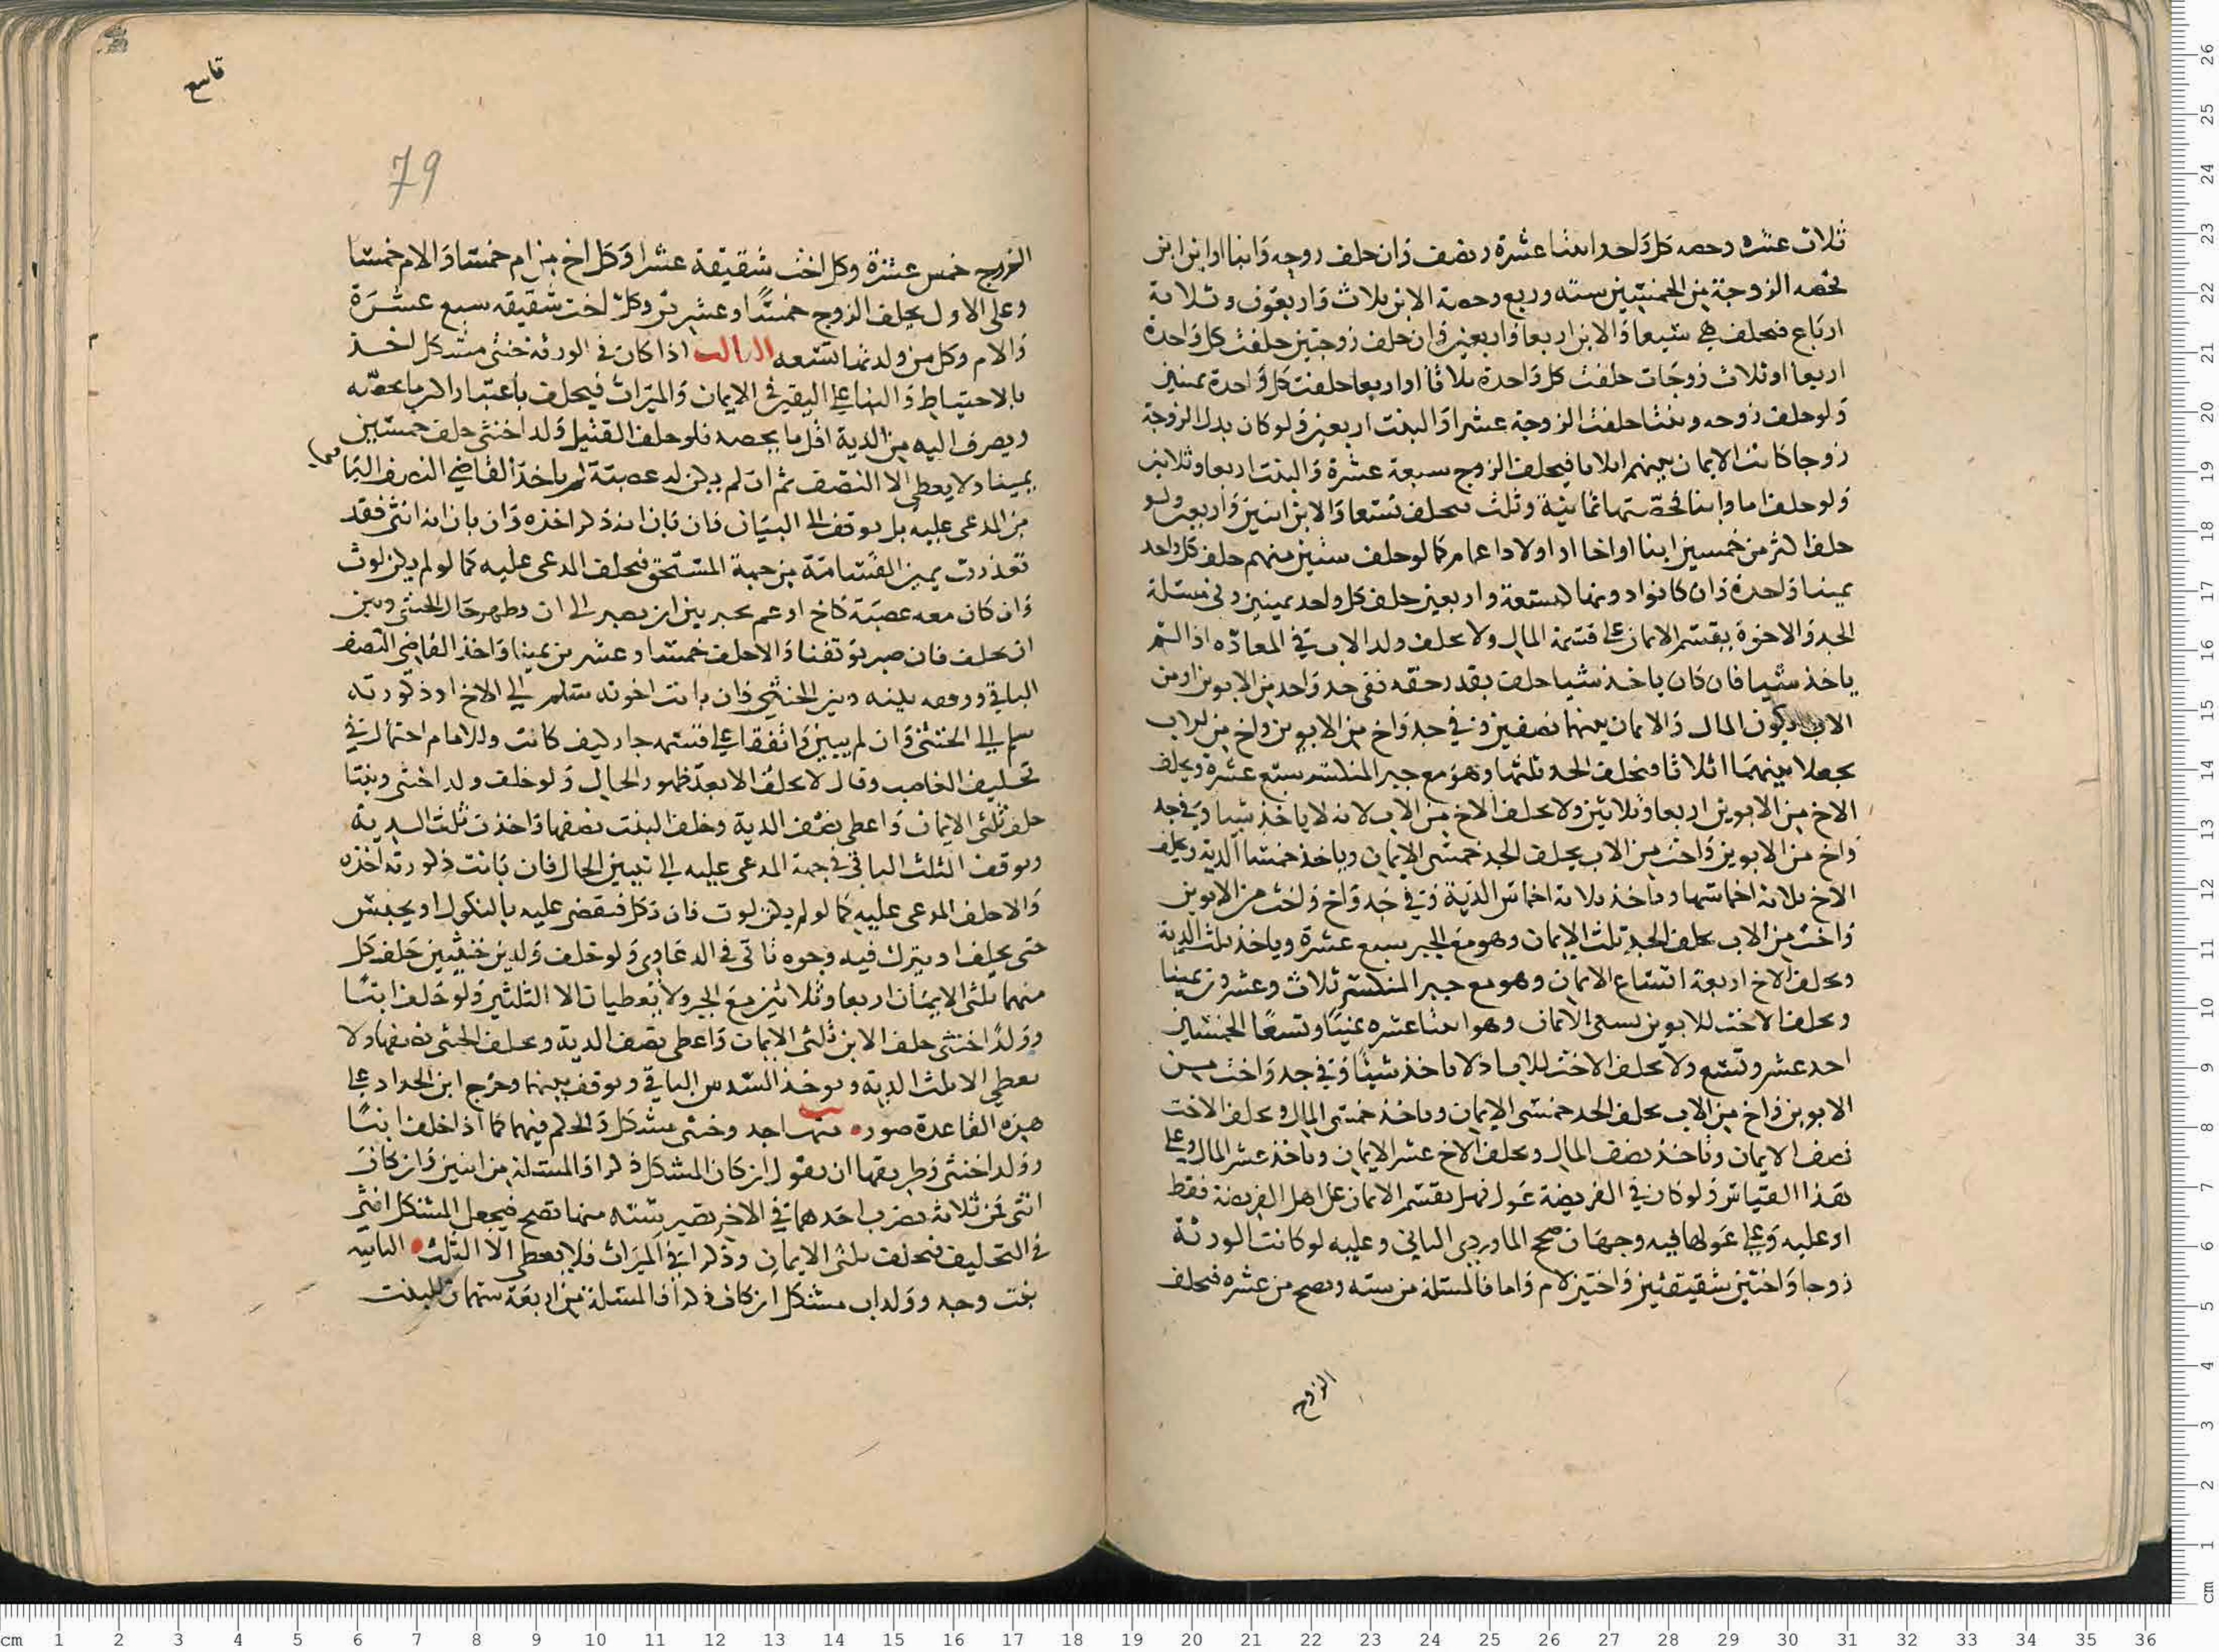 ثلاث عشره وحصه كل واحد اثنا عشرة ونصف وان خلف زوجه وابنا او ابن ابن
تخصه الزوجة من الخمسين سته وربع وحصة الابن ثلاث واربعون وثلاثة
ارباع فتحلف هي سبعا والابن اربعا واربعين وان خلف زوجتين حلفت كل واحدة
اربعا او ثلاث زوجات حلفت كل واحدة ثلاثا او اربعا حلفت كل واحدة يمينين
ولو خلف زوجه وبنتا حلفت الزوجة عشرا والبنت اربعين ولو كان بدل الزوجة
زوجا كانت الايمان بينهم اثلاثا فيحلف الزوج سبعة عشرة والبنت اربعا وثلاثين
ولو خلف اما وابنا فحصتها ثمانية وثلث فتحلف تسعا والابن اثنين واربعين ولو
خلف اكثر من خمسين ابنا او اخا او اولاد اعمام كما لو خلف ستين منهم حلف كل واحد
يمينا واحدة وان كانوا دونها كتسعة واربعين حلف كل واحد يمينين وفي مسئلة
الجد والاخوة يقسم الايمان على قسمة المال ولا يحلف ولد الاب في المعادّه اذا لم
ياخذ شيا فان كان ياخذ شيا حلف بقدر حقه ففي جد واحد من الابوين او من
الاب يكون المال والايمان بينهما نصفين وفي جد واخ من الابوين واخ من لاب
يجعلا بينهما اثلاثا فيحلف الجد ثلثها وهو مع جبر المنكسر سبع عشرة ويحلف
الاخ من الابوين اربعا وثلاثين ولا يحلف الاخ من الاب لانه لا ياخذ شيا وفي جد
واخ من الابوين واخت من الاب يحلف الجد خمسى الايمان وياخذ خمسا الدية ويحلف
الاخ ثلاثه اخماسها وياخذ ثلاثه اخماس الدية وفي جد واخ واخت من الابوين
واخت من الاب يحلف الجد ثلث الايمان وهو مع الجبر سبع عشرة وياخذ ثلث الدية
ويحلف الاخ اربعة اتساع الايمان وهو مع جبر المنكسر ثلاث وعشرون يمينا
ويحلف الاخت للابوين تسعى الايمان وهو اثنا عشره يمينا وتسعا الخمسين
احد عشر وتسع ولا يحلف الاخت للاب اذ لا ياخذ شيئا وفي جد واخت من
الابوين واخ من الاب يحلف الجد خمسى الايمان وياخذ خمسى المال ويحلف الاخت
نصف الايمان وتاخذ نصف المال ويحلف الاخ عشر الايمان وياخذ عشر المال وعلى
هذا القياس ولو كان في الفريضة عول فهل يقسم الايمان على اهل الفريضة فقط
او عليه وعلى عولها فيه وجهان صحح الماوردي الثاني وعليه لو كانت الورثة
زوجا واختين شقيقتين واختين لام واما فالمسئلة من سته وتصح من عشره فيحلف
الزوج
قاسع
79
الزوج خمس عشرة وكل اخت شقيقة عشرا وكل اخ من ام خمسا والام خمسا
وعلى الاول يحلف الزوج خمسا وعشرين وكل اخت شقيقه سبع عشرة
والام وكل من ولديها تسعه الثالث اذا كان في الورثه خنثى مشكل اخذ
بالاحتياط والبنا على اليقين في الايمان والميراث فيحلف باعتبار اكثر ما يخصه
ويصرف اليه من الدية اقل ما يخصه فلو خلف القتيل ولدا خنثى حلف خمسين
يمينا ولا يعطى الا النصف ثم ان لم يكن له عصبة لم ياخذ القاضي النصف الباقي
من المدعى عليه بل يوقف الى البيان فان بان انه ذكر اخذه وان بان انه انثى فقد
تعذرت يمين القسامة من جهة المستحق فيحلف المدعى عليه كما لو لم يكن لوث
وان كان معه عصبة كاخ او عم يخير بين ان يصبر الى ان يظهر حال الخنثى وبين
ان يحلف فان صبر توقفنا والا حلف خمسا وعشرين يمينا واخذ القاضي النصف
الباقي ووقفه بينه وبين الخنثى فان بانت اخوته سلم الى الاخ او ذكورته
سلم الى الخنثى وان لم يبين واتفقا على قسمته جاز كيف كانت وللامام احتمال في
تحليف العاصب وقال لا يحلف الا بعد ظهور الحال ولو خلف ولدا خنثى وبنتا
حلف ثلثى الايمان واعطى نصف الدية وحلف البنت نصفها واخذت ثلث الدية
ويوقف الثلث الباقي في جهة المدعى عليه الى تبيين الحال فان بانت ذكورته اخذه
والا حلف المدعى عليه كما لو لم يكن لوث فان نكل فيقضى عليه بالنكول او يحبس
حتى يحلف او يترك فيه وجوه تاتي في الدعاوى ولو خلف ولدين خنثيين حلف كل
منهما ثلثى الايمان اربعا وثلاثين مع الجبر ولا يعطيان الا الثلثين ولو خلف ابنا
وولدا خنثى حلف الابن ثلثى الايمان واعطى نصف الدية ويحلف الخنثى نصفها ولا
يعطى الا ثلث الدية ويوخذ السدس الباقي ويوقف بينهما وخرج ابن الحداد على
هذه القاعدة صور منها جد وخنثى مشكل والحكم فيهما كما اذا خلف ابنا
وولدا خنثى وطريقها ان يقول ان كان المشكل ذكرا فالمسئلة من اثنين وان كان
انثى فمن ثلاثه يضرب احدهما في الاخر يصير سته منها تصح فيجعل المشكل انثى
في التحليف فيحلف ثلثى الايمان وذكرا في الميراث فلا يعطى الا الثلث الثانيه
بنت وجد وولد اب مشكل ان كان ذكرا فالمسئلة من اربعة سهمان للبنت